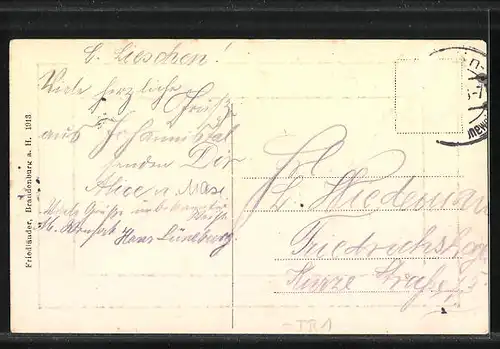 L. Lieschen!
Viele herzliche Grüße
aus Johannistal
senden Dir
Alice u. Max
Viele Grüße unbekannter
Weise
Hans Lüneburg
Friedländer, Brandenburg a. H. 1913
Frl.
L. Niedeman
Friedrichshage
Kurze Straße
TR1